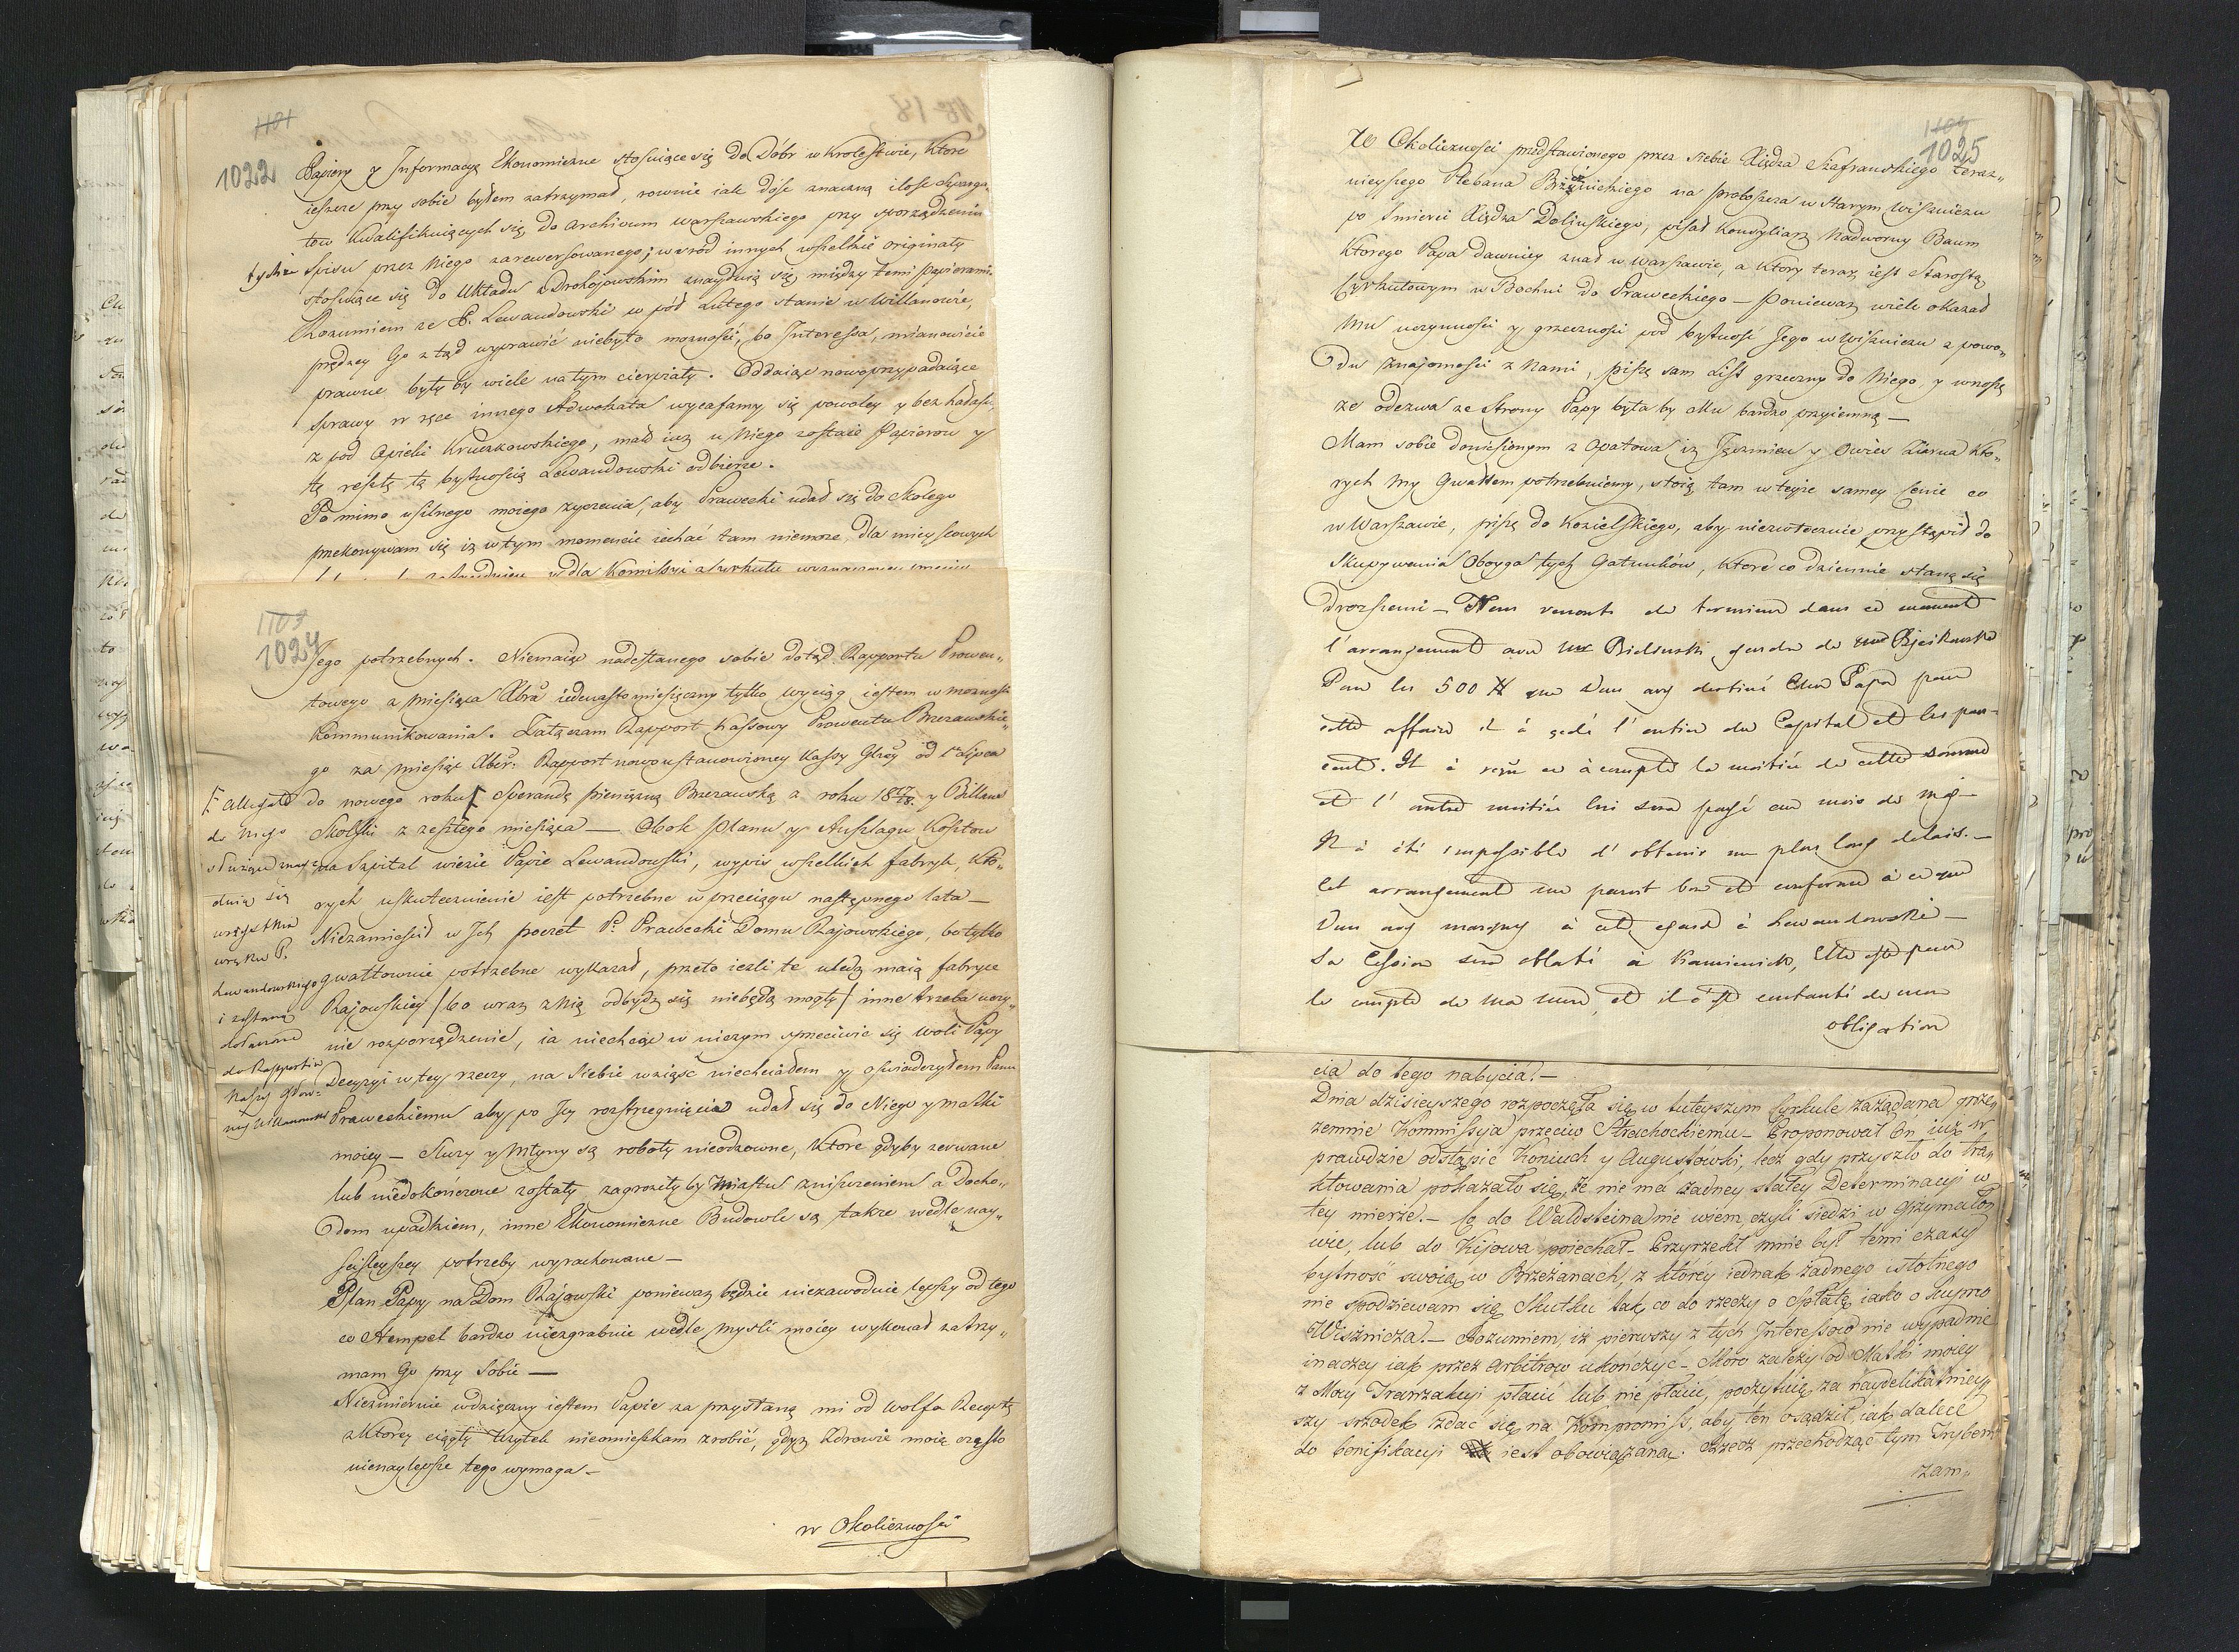 1101
1022
Papiery y Informacyę Ekonomiczne stosuiące się do Dóbr w Krolestwie, które
ieszcze przy sobie byłem zatrzymał, rownie iak dość znaczną ilość Sczarga
tow kwalifikuiących się do Archivum warszawskiego przy sporządzeniu
tychże
spisu przez Niego zarewersowanego; wsrod innych wszelkie originały
stosuiące się do Układu z Drohojowskim znayduią się między temi papierami.
Rozumiem że P. Lewandowski w pół Lutego stanie w Willanowie,
prędzey Go ztąd wyprawić niebyło moznosci, bo Interessa, mianowicie
prawne były by wiele na tym cierpiały. Oddaiąc nowoprzypadaiące
sprawy w ręce innego Adwokata wycafamy się powoley y bez hałasu,
z pod opieki Kruczkowskiego, mało iuz u Niego zostaie Papierow y
tę resztę tą bytnoscią Lewandowski odbierze.
Po mimo usilnego moiego zyczenia, aby Prawecki udał się do Skolego
przekonywam się iz w tym momencie iechać tam niemoze, dla mieyscowych
1103
1024
Jego potrzebnych. Niemaiąc nadesłanego sobie dotąd Rapportu Prowen„
towego z miesiąca Xbra iedenastomiesięczny tylko wyciąg iestem w moznosci
kommunikowania. Załączam Rapport kassowy Prowentu Brzezawskie„
go za miesiąc Xber: Rapport nowoustanowioney Kassy Głney od 1º Lipca
do nowego roku Sperandę pieniężną Brzezawską z roku 18 17/18. y Billans
Skolski z zeszłego miesiąca — Obok planu y Anszlagu Kosztow
na Szpital wiezie Papie Lewandowski, wypis wszelkich fabryk, któ„
rych uskutecznienie iest potrzebne w przeciągu następnego lata —
Niezamieścił w Ich poczet P. Prawecki Domu Rajowskiego, bo tylko
gwałtownie potrzebne wykazał, przeto iezli te uledz maią fabryce
Rajowskiey / bo wraz z nią odbydz się niebędą mogły / inne trzeba uczy„
nie rozporządzenie, ia niechcąc w niczym sprzeciwić się woli Papy
Decyzyi w tey rzeczy, na siebie wziąść niechciałem y oswiadczyłem Panu
Praweckiemu aby po Jey rozstrzegnięcia udał się do Niego y matki
moiey — Sluzy y młyny są roboty nieodzowne, które gdyby zerwane
lub niedokończone zostały zagroziłyby Miastu zniszczeniem a Docho„
dom upadkiem, inne Ekonomiczne Budowle są także wedle nay„
scisleyszey potrzeby wyrachowane —
Plan Papy na Dom Rajowski poniewaz będzie niezawodnie lepszy od tego
co Hempel bardzo niezgrabnie wedle mysli moiey wykonał zatrzy„
mam Go przy Sobie —
Niezmiernie wdzięczny iestem Papie za przysłaną mi od Wolfa Receptę
z ktorey ciągły użytek nieomieszkam zrobić, gdyz zdrowie moie często
nienaylepsze tego wymaga —
w Okoliczności
Allegata
do niego
słuzące znay
duią się
wszystkie
w ręku P.
Lewandowskiego
i zostaną
dołączone
do Rapportu
Kassy Głow:
ney Willanowski
1104
1025
W Okoliczności przedstawionego przez siebie Xiędza Szafrańskiego teraz„
nieyszego Plebana Brzeźnickiego na proboszcza w Starym Wiśniczu
po śmierci Xiędza Dolińskiego, pisał Konsyliarz Nadworny Baum
ktorego Papa dawniey znał w Warszawie, a ktory teraz iest Starostą
Cyrkułowym w Bochni do Praweckiego — ponieważ wiele okazał
mu uczynnosci y grzeczności pod bytność Jego w Wiśniczu z powo„
du znajomości z nami, piszę sam List grzeczny do Niego, y wnoszę
ze odezwa ze strony Papy była by Mu bardzo przyiemną —
Mam sobie doniesionym z Opatowa iz Jęczmień y Owies ziarna któ„
rych my gwałtem potrzebuiemy, stoią tam w teyże samey cenie co
w Warszawie, piszę do Kozielskiego, aby niezwłocznie przystąpił do
skupywania Oboyga tych Gatunków, które co dziennie staną się
droższemi — Nous venons de terminer dans ce moment
l'arrangement avec Mr Bielinski, gendre de Mme Rzeikowska
Pour les 500 # que Vous avez destiné Cher Papa pour
cette affaire il à cedé l'entier du Capital et les pour-
cents. Il à reçu en àcompte la moitié de cette somme
et l'autre moitié lui sera payé au mois de Maj —
Il à été impossible d'obtenir un plus long delais. —
Cet arrangement me parait bon et conforme à ce que
Vous avez marqué à cet egard à Lewandowski —
Sa Cession sera oblaté à Kamieniek, Elle est pour
le compte de ma mere, et il s'est contenté de mon
obligation
cia do tego nabycia. —
Dnia dzisieyszego rozpoczęła się w tuteyszym Cyrkule zażądana prze„
zemnie Kommissya przeciw Strachockiemu — Proponował On iuż w„
prawdzie odstąpić Koniuch y Augustowki, lecz gdy przyszło do tra„
ktowania pokazało się, że nie ma żadney stałey Determinacyi w
tey mierze. — Co do Waldsteina nie wiem, czyli siedzi w Grzymało„
wie, lub do Kijowa poiechał — Przyrzekł mnie był temi czasy
bytność swoią w Brzeżanach, z którey iednak żadnego istotnego
nie spodziewam się skutku tak, co do rzeczy o Spłatę iako o kupno
Wiśnicza. — Rozumiem, iż pierwszy z tych Interessow nie wypadnie
inaczey iak przez Arbitrow ukończyć — Skoro zależy od Matki moiey
z Mocy Tranzakcyi płacić lub nie płacić, poczytuię za naydelikatniey„
szy srzodek zdać się na Kompromiss, aby ten osądził, iak dalece
do bonifikacyi iest obowiązaną. Rzecz przechodząc tym Trybem
zam„